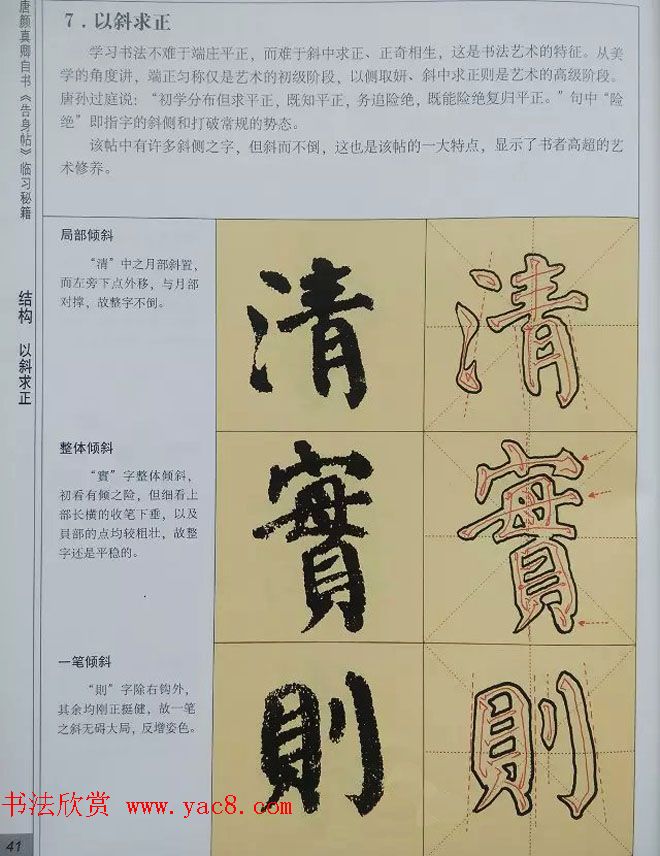 7．以斜求正
学习书法不难于端庄平正，而难于斜中求正、正奇相生，这是书法艺术的特征。从美
学的角度讲，端正匀称仅是艺术的初级阶段，以侧取妍、斜中求正则是艺术的高级阶段。
唐孙过庭说：“初学分布但求平正，既知平正，务追险绝，既能险绝复归平正。”句中“险
绝”即指字的斜侧和打破常规的势态。
该帖中有许多斜侧之字，但斜而不倒，这也是该帖的一大特点，显示了书者高超的艺
术修养。
唐颜真卿自书《告身帖》临习秘籍
结构 以斜求正
局部倾斜
“清”中之月部斜置，
而左旁下点外移，与月部
对撑，故整字不倒。
清
清
整体倾斜
“實”字整体倾斜，
初看有倾之险，但细看上
部长横的收笔下垂，以及
貝部的点均较粗壮，故整
字还是平稳的。
實
實
一笔倾斜
“則”字除右钩外，
其余均刚正挺健，故一笔
之斜无碍大局，反增姿色。
則
則
书法欣赏 www.yac8.com
41